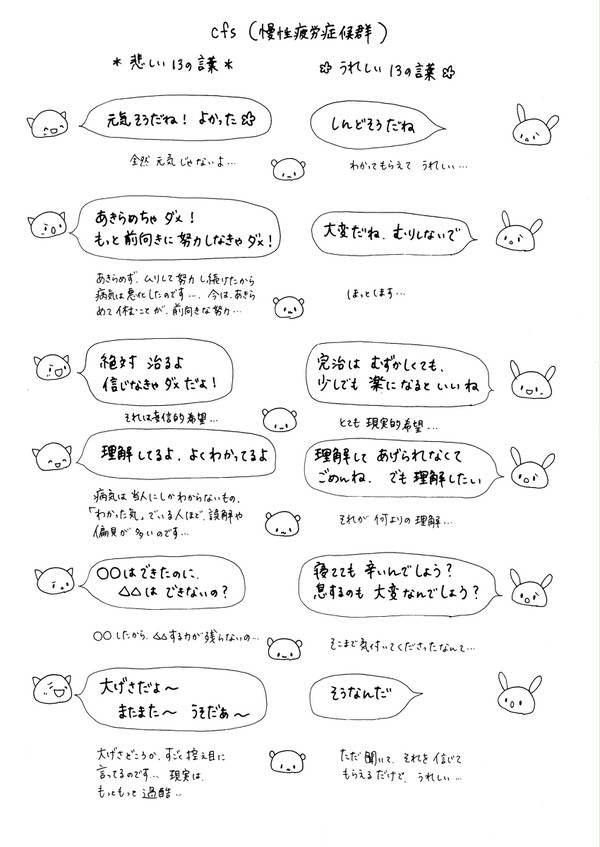 cfs (慢性疲労症候群)
＊ 悲しい 13の言葉 ＊
✿ うれしい 13の言葉 ✿
元気そうだね！ よかった✿
しんどそうだね
全然 元気じゃないよ…
わかってもらえて うれしい…
あきらめちゃ ダメ！
もっと 前向きに 努力しなきゃ ダメ！
大変だね、むりしないで
あきらめず、ムリして 努力 し続けたから
病気は悪化したのです…、今は、あきら
めて 休むことが、前向きな努力…
ほっとします…
絶対 治るよ
信じなきゃ ダメ だよ！
完治は むずかしくても、
少しでも 楽になると いいね
それは妄信的希望…
とても 現実的希望…
理解してるよ、よくわかってるよ
理解して あげられなくて
ごめんね、でも 理解したい
病気は 当人にしかわからないもの、
「わかった気」でいる人ほど、誤解や
偏見が 多いのです…
それが 何よりの 理解…
○○はできたのに、
△△は できないの？
寝てても 辛いんでしょう？
息するのも 大変なんでしょう？
○○したから、△△する力が 残らないの…
そこまで 気付いてくださったなんて…
大げさだよ〜
またまた〜 うそだぁ〜
そうなんだ
大げさどころか、すごく控え目に
言ってるのです… 現実は、
もっともっと 過酷…
ただ 聞いて、それを 信じて
もらえるだけで、うれしい…